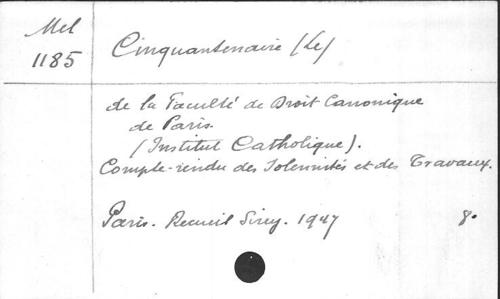 Mel
1185
Cinquantenaire (Le)
de la Faculté de Droit Canonique
de Paris.
(Institut Catholique).
Compte-rendu des Solennités et des Travaux.
Paris. Recueil Sirey. 1947 8°